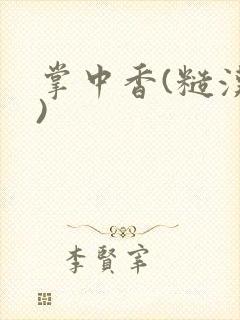 掌中香(糙汉
)
李賢宰